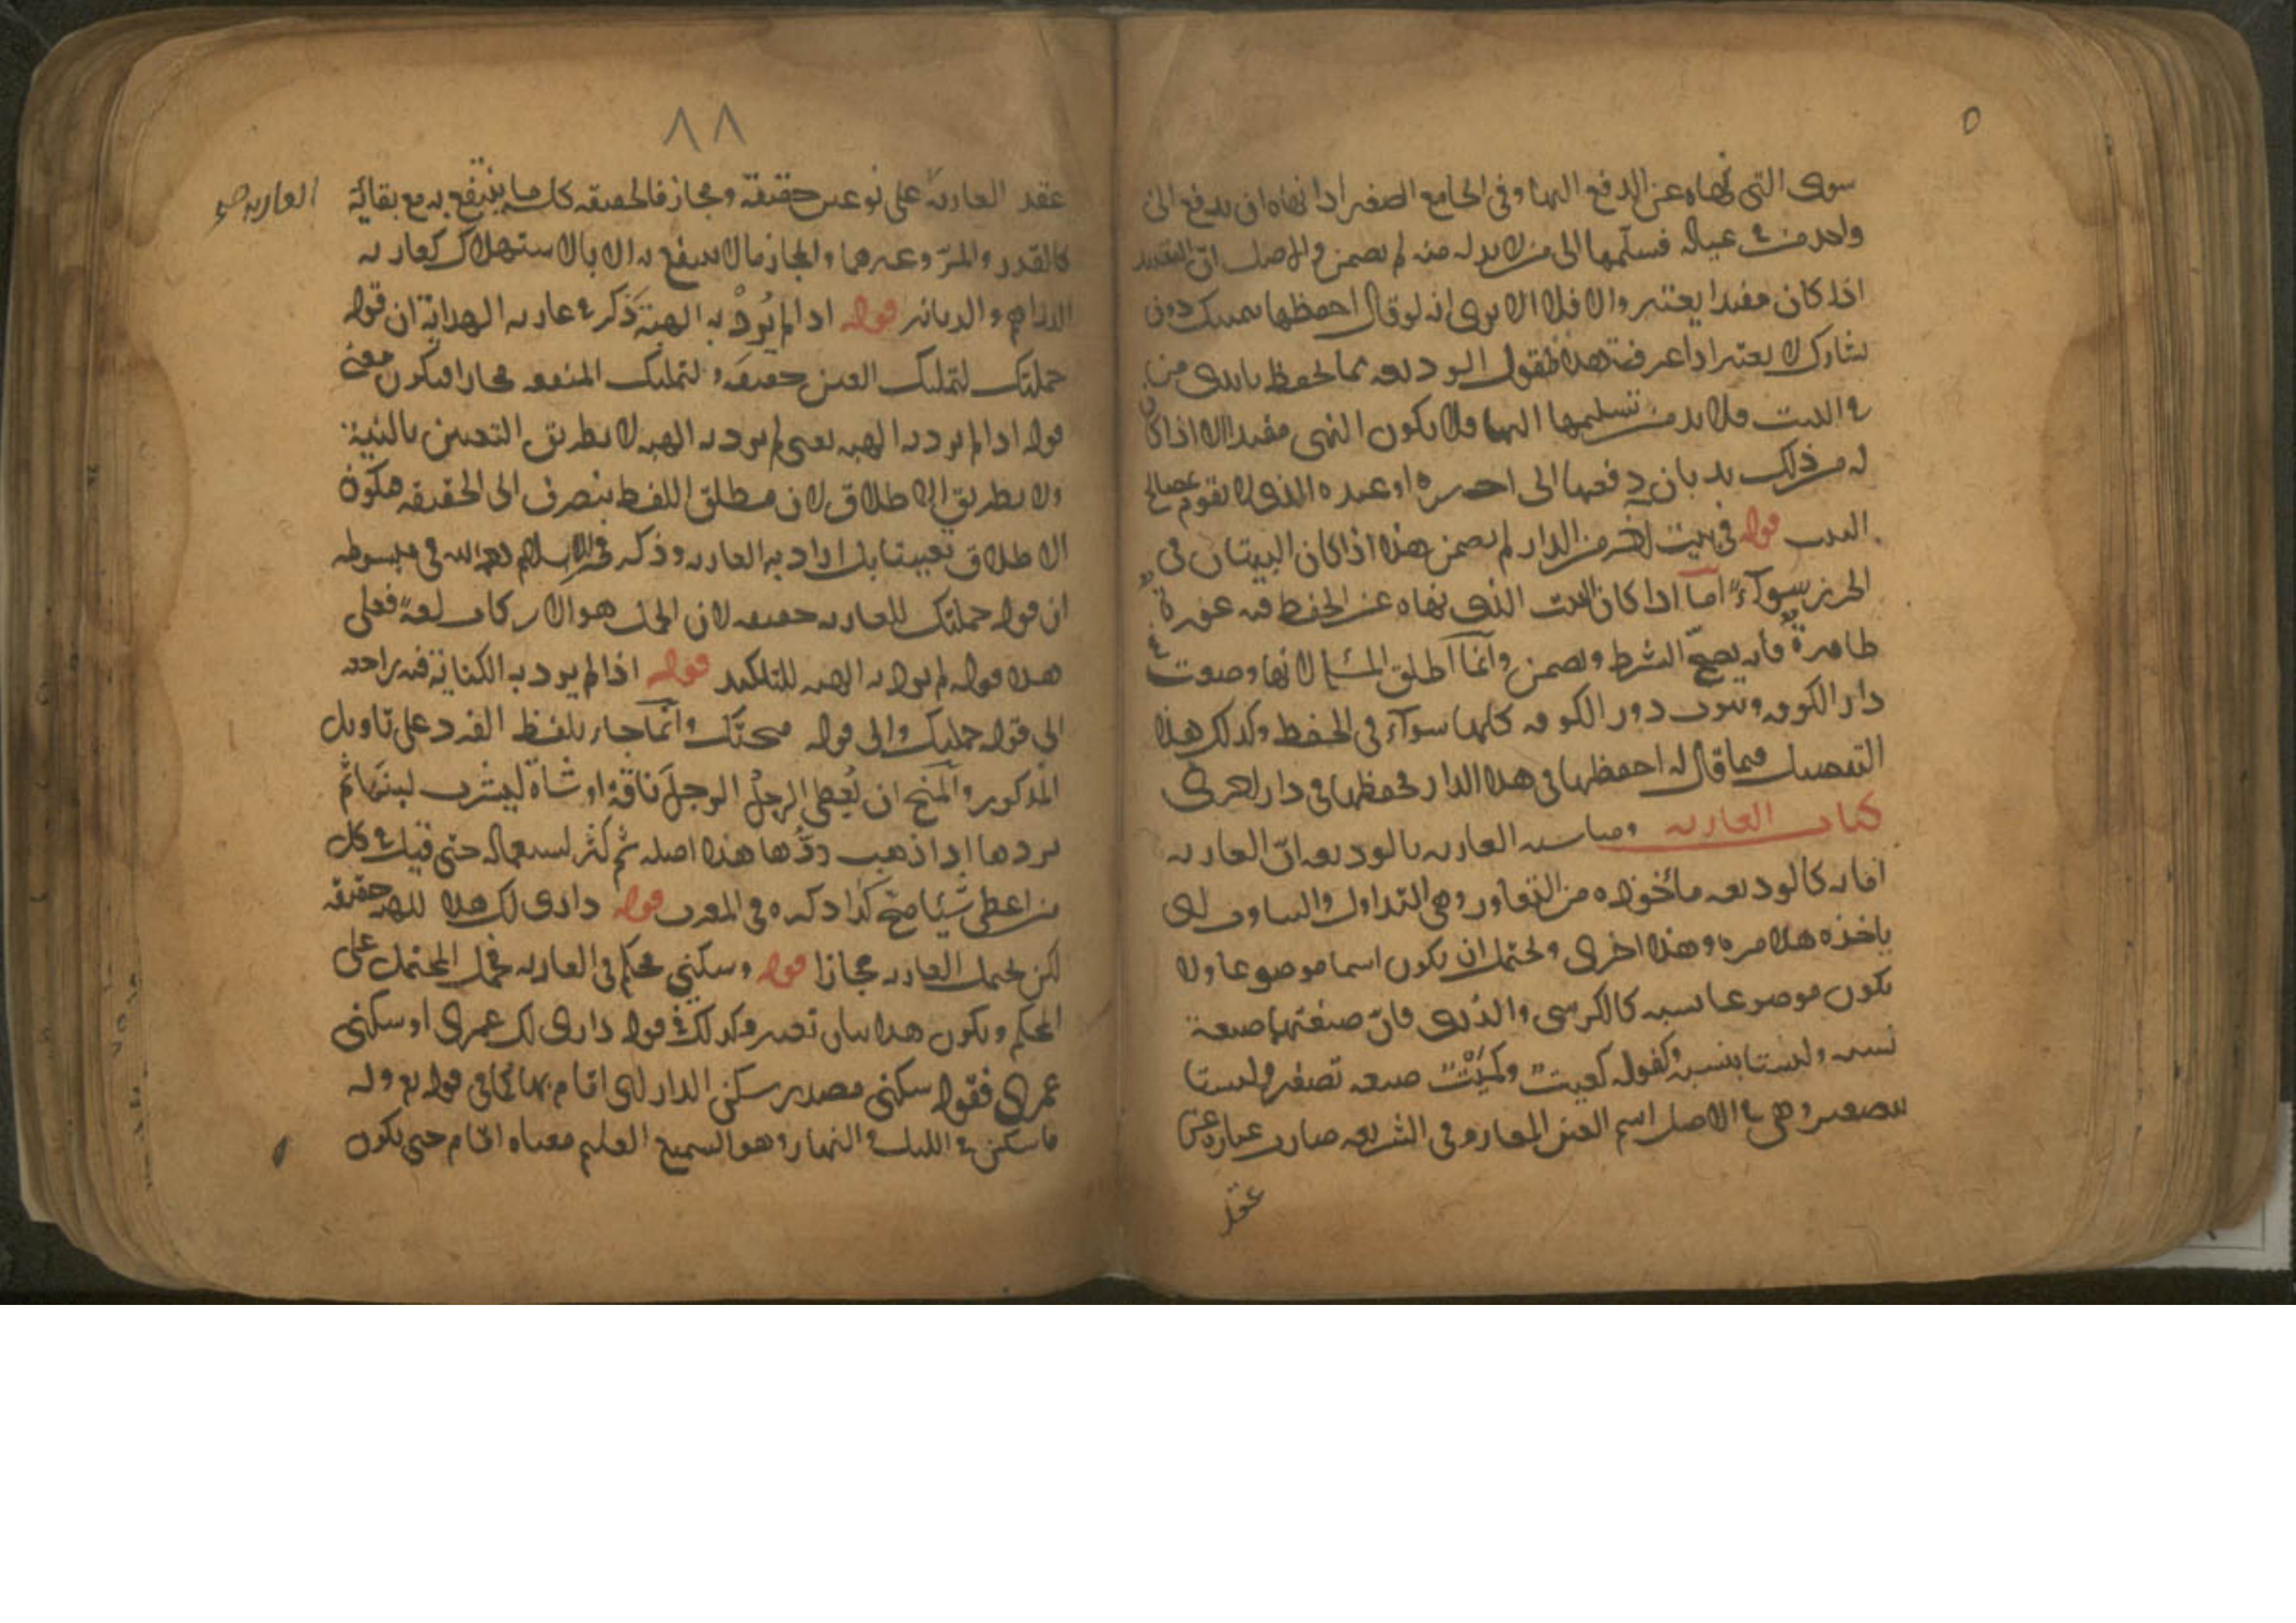 سوى التي نهاه عن الدفع اليها وفي الجامع الصغير اذا نهاه ان يدفع الى
واحد من في عياله فسلمها الى من لا بد له منه لم يضمن والاصل ان التقييد
اذا كان مفيدا يعتبر والا فلا الا يرى انه لو قال احفظها بيمينك دون
يسارك لا يعتبر اذا عرفت هذا فنقول الوديعة مما يحفظ بايدى من
في البيت فلا بد من تسليمها اليها فلا يكون النهى مفيدا الا اذا كان
له من ذلك بد بان دفعها الى اجيره او عبده الذى لا يقوم بمصالح
البيت قوله في بيت اخر من الدار لم يضمن هذا اذا كان البيتان في
الحرز سوآء اما اذا كان البيت الذى نهاه عن الحفظ فيه عورة
ظاهرة فانه يصح الشرط ويضمن وانما اطلق المسئلة لانها وضعت في
دار الكوفة وبيوت دور الكوفة كلها سوآء في الحفظ وكذلك هذا
التفصيل فيما قال له احفظها في هذا الدار فحفظها في دار اخرى
كتاب العارية ومناسبة العارية بالوديعة ان العارية
امانة كالوديعة مأخوذه من التعاور وهى التداول والتناوب اى
ياخذه هذا مرة وهذا اخرى ويحتمل ان يكون اسما موضوعا ولا
يكون موضوعا لنسبه كالكرسى والدُرى فان صيغتها صيغة
نسبه وليستا بنسبة وكقوله كعيت وكُمَيْت صيغه تصغير وليستا
بتصغير وهى في الاصل اسم العين المعار وفى الشريعه صارت عبارة عن
عقد
٨٨
العارية
عقد العارية على نوعين حقيقة ومجاز فالحقيقه كل ما ينتفع به مع بقائه
كالقدر والمرّ وغيرهما والمجاز مالا ينتفع به الا بالاستهلاك كعارية
الدراهم والدنانير قوله اذا لم يُرِدْ به الهبة ذكر في عارية الهداية ان قوله
حملتك لتمليك العين حقيقة ولتمليك المنفعه مجازا فيكون معنى
قوله اذا لم يرد به الهبه يعنى لم يرد به الهبه لا بطريق التعيين بالنية
ولا بطريق الاطلاق لان مطلق اللفظ ينصرف الى الحقيقه فيكون
الاطلاق تعيينا بل اراد به العاريه وذكر فخر الاسلام رحمه الله في مبسوطه
ان قوله حملتك للعاريه حقيقه لان الحمل هو الاركاب لغة فعلى
هذا قوله لم يرد به الهبه للتاكيد قوله اذا لم يرد به الكناية فيه راجعه
الى قوله حملتك والى قوله منحتك وانما جاء بلفظ الفرد على تاويل
المذكور والمنح ان يُعطى الرجلُ الرجلَ ناقة او شاة ليشرب لبنها ثم
يردها اذا ذهب درُّها هذا اصله ثم كثر استعماله حتى قيل في كل
من اعطى شيئا منح كذا ذكره في المغرب قوله دارى لك هذا للهبه حقيقه
لكن يحتمل العاريه مجازا قوله وسكنى محكم في العاريه فحمل المحتمل على
المحكم ويكون هذا بيان تغيير وكذلك في قوله دارى لك عمرى او سكنى
عمرى فقوله سكنى مصدر سكن الدار اى اقام بها كما في قوله تع وله
ما سكن في الليل والنهار وهو السميع العليم معناه اقام حتى يكون